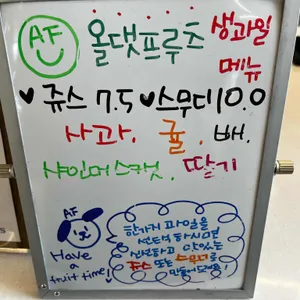 AF
올댓프루츠 생과일
메뉴
♥ 쥬스 7.5 ♥ 스무디 10.0
사과. 귤. 배.
샤인머스캣. 딸기
AF
Have a
fruit time!
한가지 과일을
선택하시면
신선하고 맛있는
쥬스 또는 스무디로
만들어드려요!